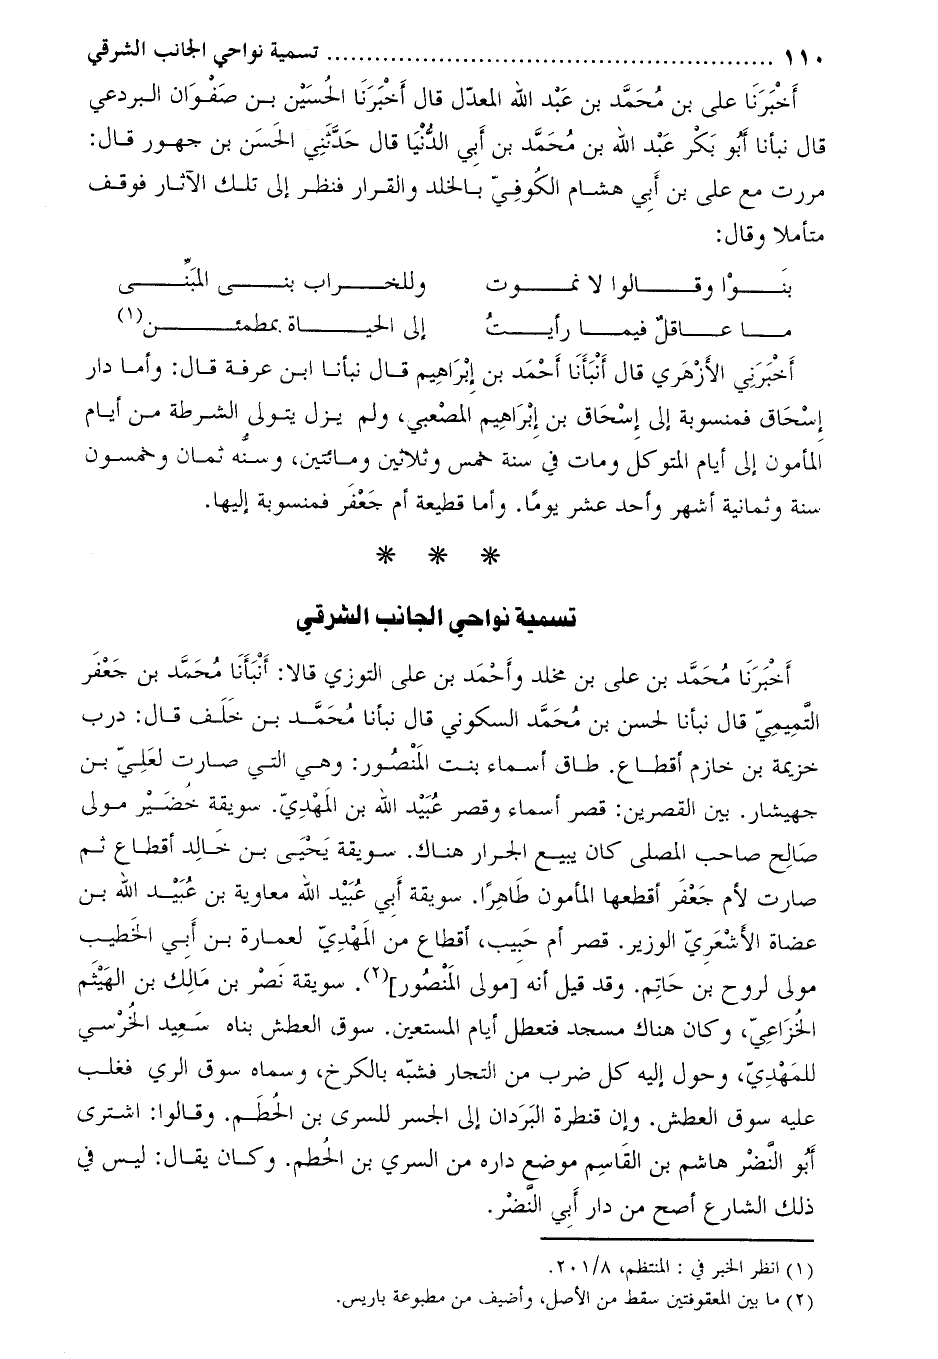 ١١٠ ........................................................ تسمية نواحي الجانب الشرقي
أَخْبَرَنَا على بن مُحَمَّد بن عَبْد الله المعدّل قال أَخْبَرَنَا الحُسَيْن بن صَفْوَان البردعي
قال نبأنا أَبُو بَكْر عَبْد الله بن مُحَمَّد بن أَبِي الدُّنْيَا قال حَدَّثَنِي الحَسَن بن جهور قال:
مررت مع على بن أَبِي هشام الكُوفِيّ بالخلد والقرار فنظر إلى تلك الآثار فوقف
متأملا وقال:
بنَــوْا وقــالوا لا نموت وللخــراب بنــى المَبَنِّــى
مــا عــاقلٌ فيمــا رأيــتُ إلى الحيــاة بمطمئــن(١)
أَخْبَرَنِي الأَزْهَري قال أَنْبَأَنَا أَحْمَد بن إِبْرَاهِيم قال نبأنا ابن عرفة قال: وأما دار
إِسْحَاق فمنسوبة إلى إِسْحَاق بن إِبْرَاهِيم المصْعبي، ولم يزل يتولى الشرطة من أيام
المأمون إلى أيام المتوكل ومات في سنة خمس وثلاثين ومائتين، وسنُّه ثمان وخمسون
سنة وثمانية أشهر وأحد عشر يومًا. وأما قطيعة أم جَعْفَر فمنسوبة إليها.
* * *
تسمية نواحي الجانب الشرقي
أَخْبَرَنَا مُحَمَّد بن على بن مخلد وأَحْمَد بن على التوزي قالا: أَنْبَأَنَا مُحَمَّد بن جَعْفَر
التَّمِيمِيّ قال نبأنا لحسن بن مُحَمَّد السكوني قال نبأنا مُحَمَّد بن خَلَف قال: درب
خزيمة بن خازم أقطاع. طاق أسماء بنت المَنْصُور: وهي التي صارت لعَلِيّ بن
جهيشار. بين القصرين: قصر أسماء وقصر عُبَيْد الله بن المَهْدِيّ. سويقة خُضَيْر مولى
صَالِح صاحب المصلى كان يبيع الجرار هناك. سويقة يَحْيَى بن خَالِد أقطاع ثم
صارت لأم جَعْفَر أقطعها المأمون طَاهِرًا. سويقة أَبِي عُبَيْد الله معاوية بن عُبَيْد الله بن
عضاة الأَشْعَرِيّ الوزير. قصر أم حَبِيب، أقطاع من المَهْدِيّ لعمارة بن أَبِي الخَطِيب
مولى لروح بن حَاتِم. وقد قيل أنه [مولى المَنْصُور](٢). سويقة نَصْر بن مَالِك بن الهَيْثَم
الخُزَاعِيّ، وكان هناك مسجد فتعطل أيام المستعين. سوق العطش بناه سَعِيد الخُرْسي
للمَهْدِيّ، وحول إليه كل ضرب من التجار فشبّه بالكرخ، وسماه سوق الري فغلب
عليه سوق العطش. وإن قنطرة البَرَدان إلى الجسر للسرى بن الحُطَم. وقالوا: اشترى
أَبُو النَّضْر هاشم بن القَاسِم موضع داره من السري بن الحُطم. وكان يقال: ليس في
ذلك الشارع أصح من دار أَبِي النَّضْر.
(١) انظر الخبر في : المنتظم، ٢٠١/٨.
(٢) ما بين المعقوفتين سقط من الأصل، وأضيف من مطبوعة باريس.